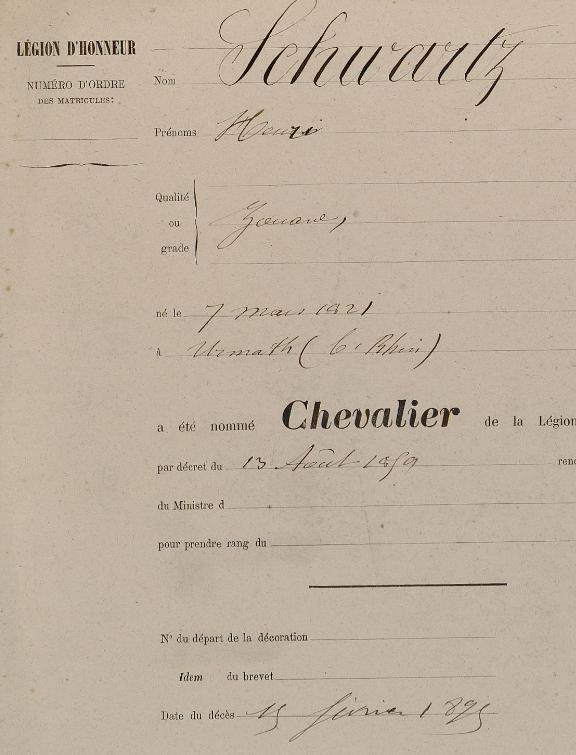 LÉGION D'HONNEUR
NUMÉRO D'ORDRE
DES MATRICULES:
Nom Schwartz
Prénoms Henri
Qualité
ou Zouave,
grade
né le 7 mars 1821
à Urmath (Bs Rhin)
a été nommé Chevalier de la Légion
par décret du 13 Août 1859 rend
du Ministre d
pour prendre rang du
N° du départ de la décoration
Idem du brevet
Date du décès 15 février 1895